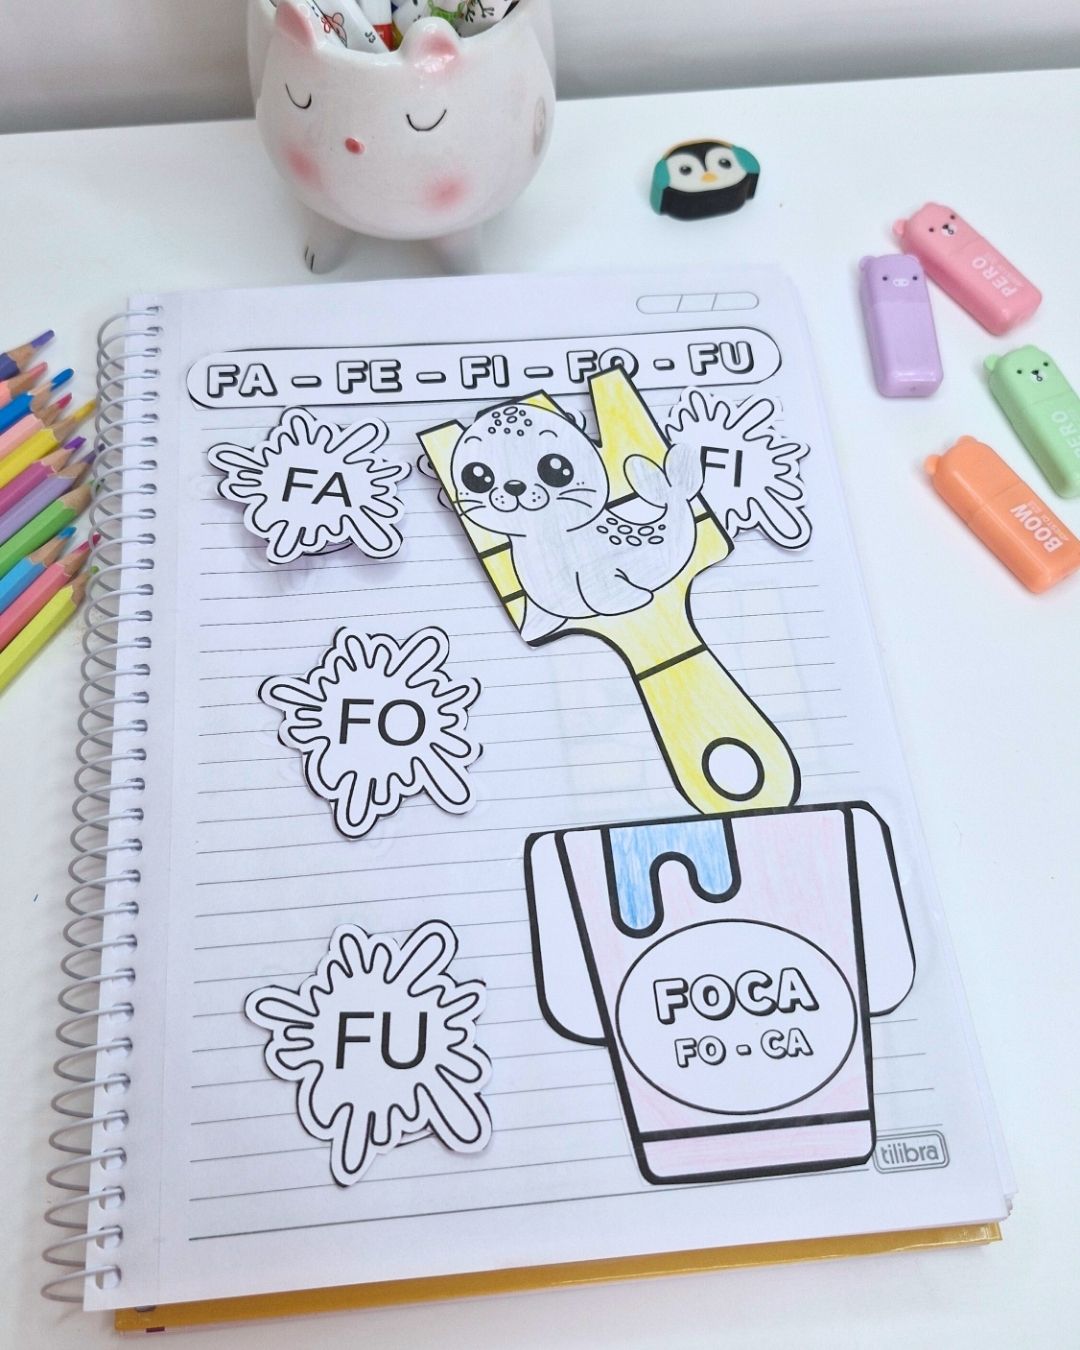 FA – FE – FI – FO - FU
FA
FI
FO
FU
FOCA
FO - CA
tilibra
PERO
BOOW